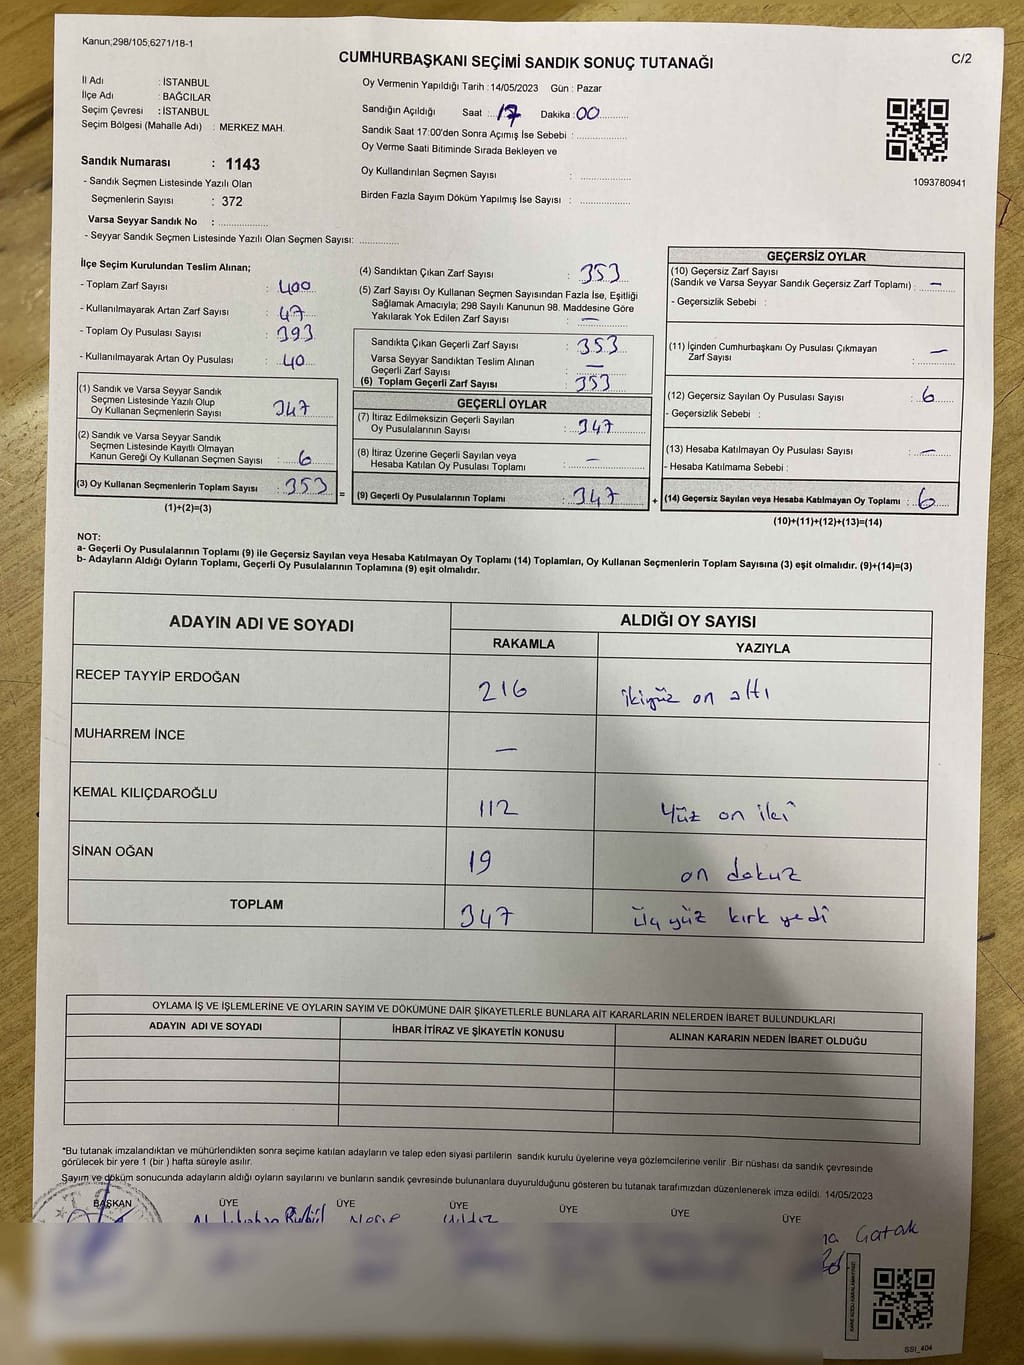 Kanun;298/105;6271/18-1
C/2
CUMHURBAŞKANI SEÇİMİ SANDIK SONUÇ TUTANAĞI
İl Adı : İSTANBUL
İlçe Adı : BAĞCILAR
Seçim Çevresi : İSTANBUL
Seçim Bölgesi (Mahalle Adı) : MERKEZ MAH.
Sandık Numarası : 1143
- Sandık Seçmen Listesinde Yazılı Olan
Seçmenlerin Sayısı : 372
Varsa Seyyar Sandık No : ..................
- Seyyar Sandık Seçmen Listesinde Yazılı Olan Seçmen Sayısı: ..............
Oy Vermenin Yapıldığı Tarih : 14/05/2023 Gün : Pazar
Sandığın Açıldığı Saat : 17 Dakika : 00
Sandık Saat 17:00'den Sonra Açımış İse Sebebi : ..................
Oy Verme Saati Bitiminde Sırada Bekleyen ve
Oy Kullandırılan Seçmen Sayısı : ..................
Birden Fazla Sayım Döküm Yapılmış İse Sayısı : ..................
1093780941
İlçe Seçim Kurulundan Teslim Alınan;
- Toplam Zarf Sayısı : 400
- Kullanılmayarak Artan Zarf Sayısı : 47
- Toplam Oy Pusulası Sayısı : 393
- Kullanılmayarak Artan Oy Pusulası : 40
(1) Sandık ve Varsa Seyyar Sandık
Seçmen Listesinde Yazılı Olup
Oy Kullanan Seçmenlerin Sayısı : 347
(2) Sandık ve Varsa Seyyar Sandık
Seçmen Listesinde Kayıtlı Olmayan
Kanun Gereği Oy Kullanan Seçmen Sayısı : 6
(3) Oy Kullanan Seçmenlerin Toplam Sayısı : 353
(1)+(2)=(3)
(4) Sandıktan Çıkan Zarf Sayısı : 353
(5) Zarf Sayısı Oy Kullanan Seçmen Sayısından Fazla İse, Eşitliği
Sağlamak Amacıyla; 298 Sayılı Kanunun 98. Maddesine Göre
Yakılarak Yok Edilen Zarf Sayısı : —
Sandıkta Çıkan Geçerli Zarf Sayısı : 353
Varsa Seyyar Sandıktan Teslim Alınan
Geçerli Zarf Sayısı : —
(6) Toplam Geçerli Zarf Sayısı : 353
GEÇERLİ OYLAR
(7) İtiraz Edilmeksizin Geçerli Sayılan
Oy Pusulalarının Sayısı : 347
(8) İtiraz Üzerine Geçerli Sayılan veya
Hesaba Katılan Oy Pusulası Toplamı : —
= (9) Geçerli Oy Pusulalarının Toplamı : 347
GEÇERSİZ OYLAR
(10) Geçersiz Zarf Sayısı
(Sandık ve Varsa Seyyar Sandık Geçersiz Zarf Toplamı) : —
- Geçersizlik Sebebi :
(11) İçinden Cumhurbaşkanı Oy Pusulası Çıkmayan
Zarf Sayısı : —
(12) Geçersiz Sayılan Oy Pusulası Sayısı : 6
- Geçersizlik Sebebi :
(13) Hesaba Katılmayan Oy Pusulası Sayısı : —
- Hesaba Katılmama Sebebi :
+ (14) Geçersiz Sayılan veya Hesaba Katılmayan Oy Toplamı : 6
(10)+(11)+(12)+(13)=(14)
NOT:
a- Geçerli Oy Pusulalarının Toplamı (9) ile Geçersiz Sayılan veya Hesaba Katılmayan Oy Toplamı (14) Toplamları, Oy Kullanan Seçmenlerin Toplam Sayısına (3) eşit olmalıdır. (9)+(14)=(3)
b- Adayların Aldığı Oyların Toplamı, Geçerli Oy Pusulalarının Toplamına (9) eşit olmalıdır.
ADAYIN ADI VE SOYADI ALDIĞI OY SAYISI
RAKAMLA YAZIYLA
RECEP TAYYİP ERDOĞAN 216 ikiyüz on altı
MUHARREM İNCE —
KEMAL KILIÇDAROĞLU 112 Yüz on iki
SİNAN OĞAN 19 on dokuz
TOPLAM 347 üç yüz kırk yedi
OYLAMA İŞ VE İŞLEMLERİNE VE OYLARIN SAYIM VE DÖKÜMÜNE DAİR ŞİKAYETLERLE BUNLARA AİT KARARLARIN NELERDEN İBARET BULUNDUKLARI
ADAYIN ADI VE SOYADI İHBAR İTİRAZ VE ŞİKAYETİN KONUSU ALINAN KARARIN NEDEN İBARET OLDUĞU
*Bu tutanak imzalandıktan ve mühürlendikten sonra seçime katılan adayların ve talep eden siyasi partilerin sandık kurulu üyelerine veya gözlemcilerine verilir .Bir nüshası da sandık çevresinde
görülecek bir yere 1 (bir ) hafta süreyle asılır.
Sayım ve döküm sonucunda adayların aldığı oyların sayılarını ve bunların sandık çevresinde bulunanlara duyurulduğunu gösteren bu tutanak tarafımızdan düzenlenerek imza edildi. 14/05/2023
BAŞKAN ÜYE ÜYE ÜYE ÜYE ÜYE ÜYE
Yıldız
SSI_404